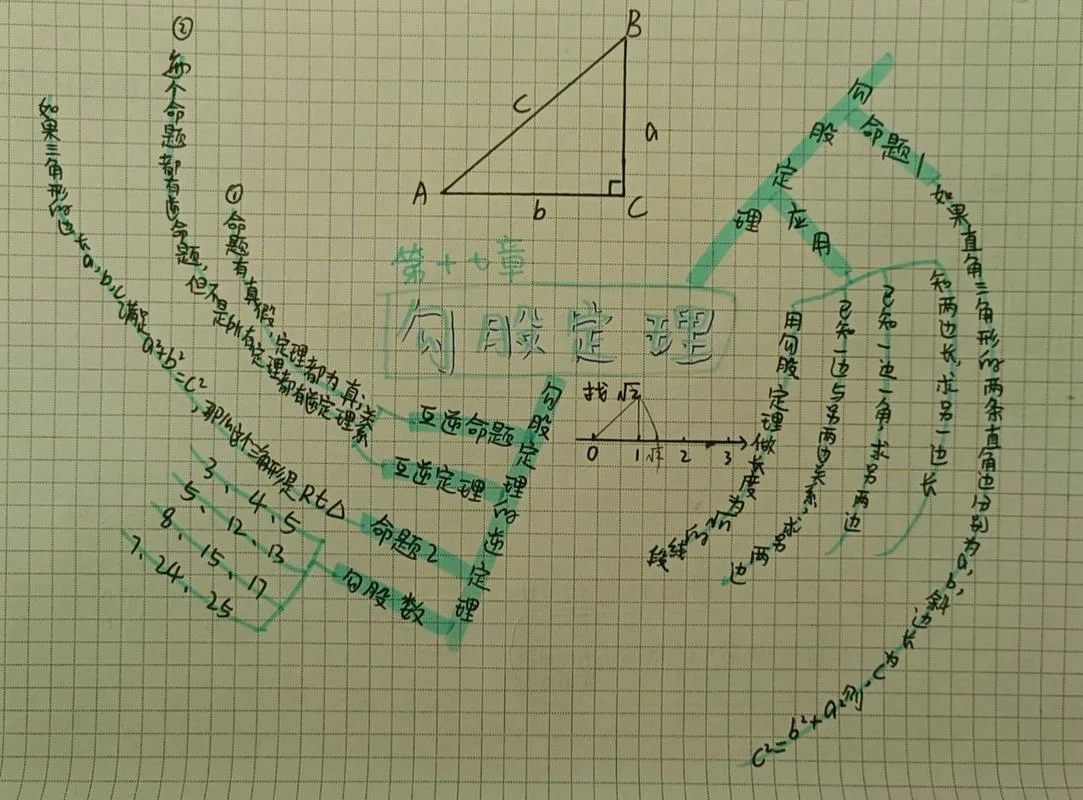 B
C
a
A
b
C
第十七章
勾股定理
勾股定理
命题1
如果直角三角形的两条直角边分别为a,b,斜边长为c,则a²+b²=c²
应用
知两边长,求另一边长
已知一边一角求另两边
已知一边与另两边关系,求另两边
用勾股定理做长度为√n的线段
找√2
0
1
√2
2
3
勾股定理的逆定理
互逆命题
①命题有真假,定理都为真;类系
互逆定理
②每个命题都有逆命题,但不是所有定理都有逆定理
命题2
如果三角形的边长a,b,c满足a²+b²=c²,那么这个三角形是Rt△
勾股数
3、4、5
5、12、13
8、15、17
7、24、25